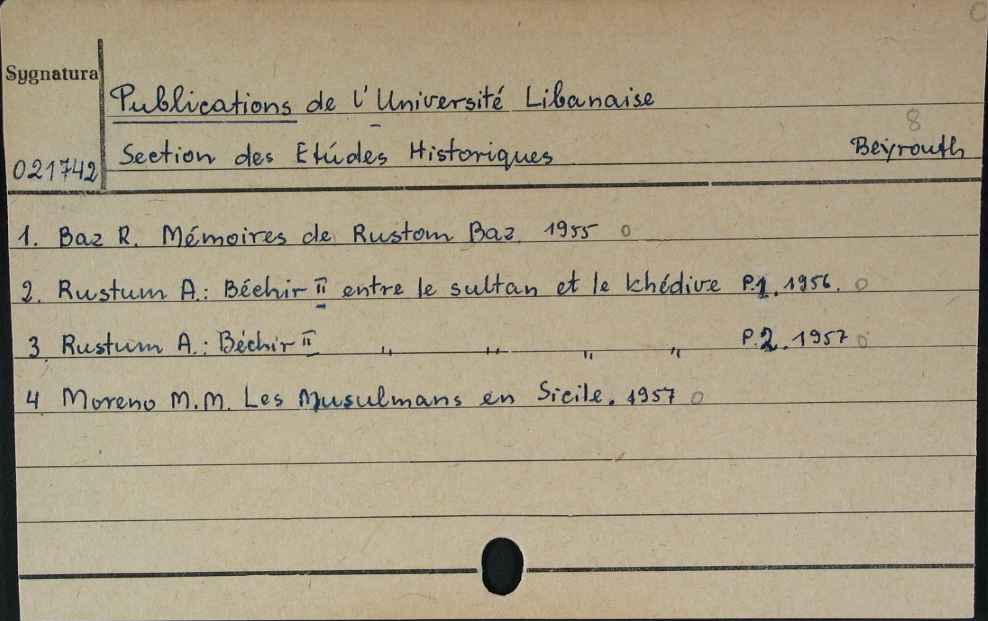 Sygnatura
Publications de l'Université Libanaise
8
021742 Section des Etúdes Historiques Beyrouth
1. Baz R. Mémoires de Rustom Baz. 1955 o
2. Rustum A.: Béchir II entre le sultan et le khédive P.1. 1956. o
3 Rustum A.: Béchir II " " " " P.2. 1957 o
4 Moreno M.M. Les Musulmans en Sicile. 1957 o